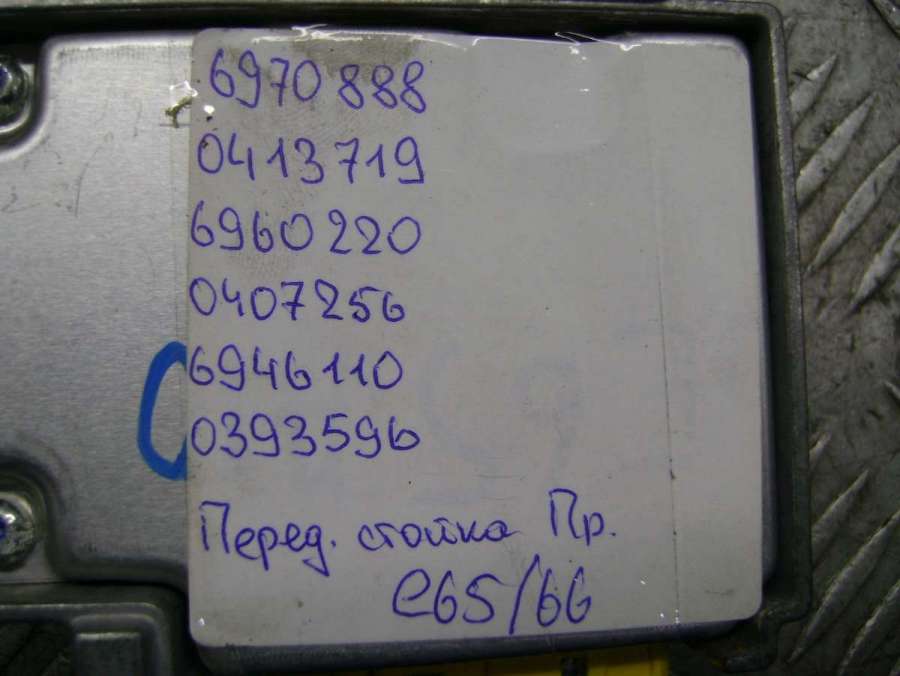 6970888
0413719
6960220
0407256
6946110
0393596
Перед. стойка Пр.
e65/66